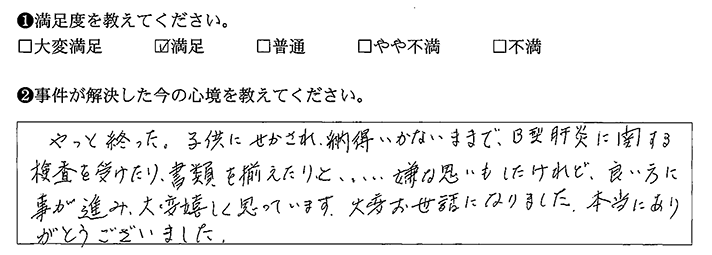 ❶満足度を教えてください。
☐大変満足 ☑満足 ☐普通 ☐やや不満 ☐不満
❷事件が解決した今の心境を教えてください。
やっと終った。子供にせかされ、納得いかないままで、B型肝炎に関する
検査を受けたり、書類を揃えたりと、、、、、嫌な思いもしたけれど、良い方に
事が進み、大変嬉しく思っています。大変お世話になりました。本当にあり
がとうございました。